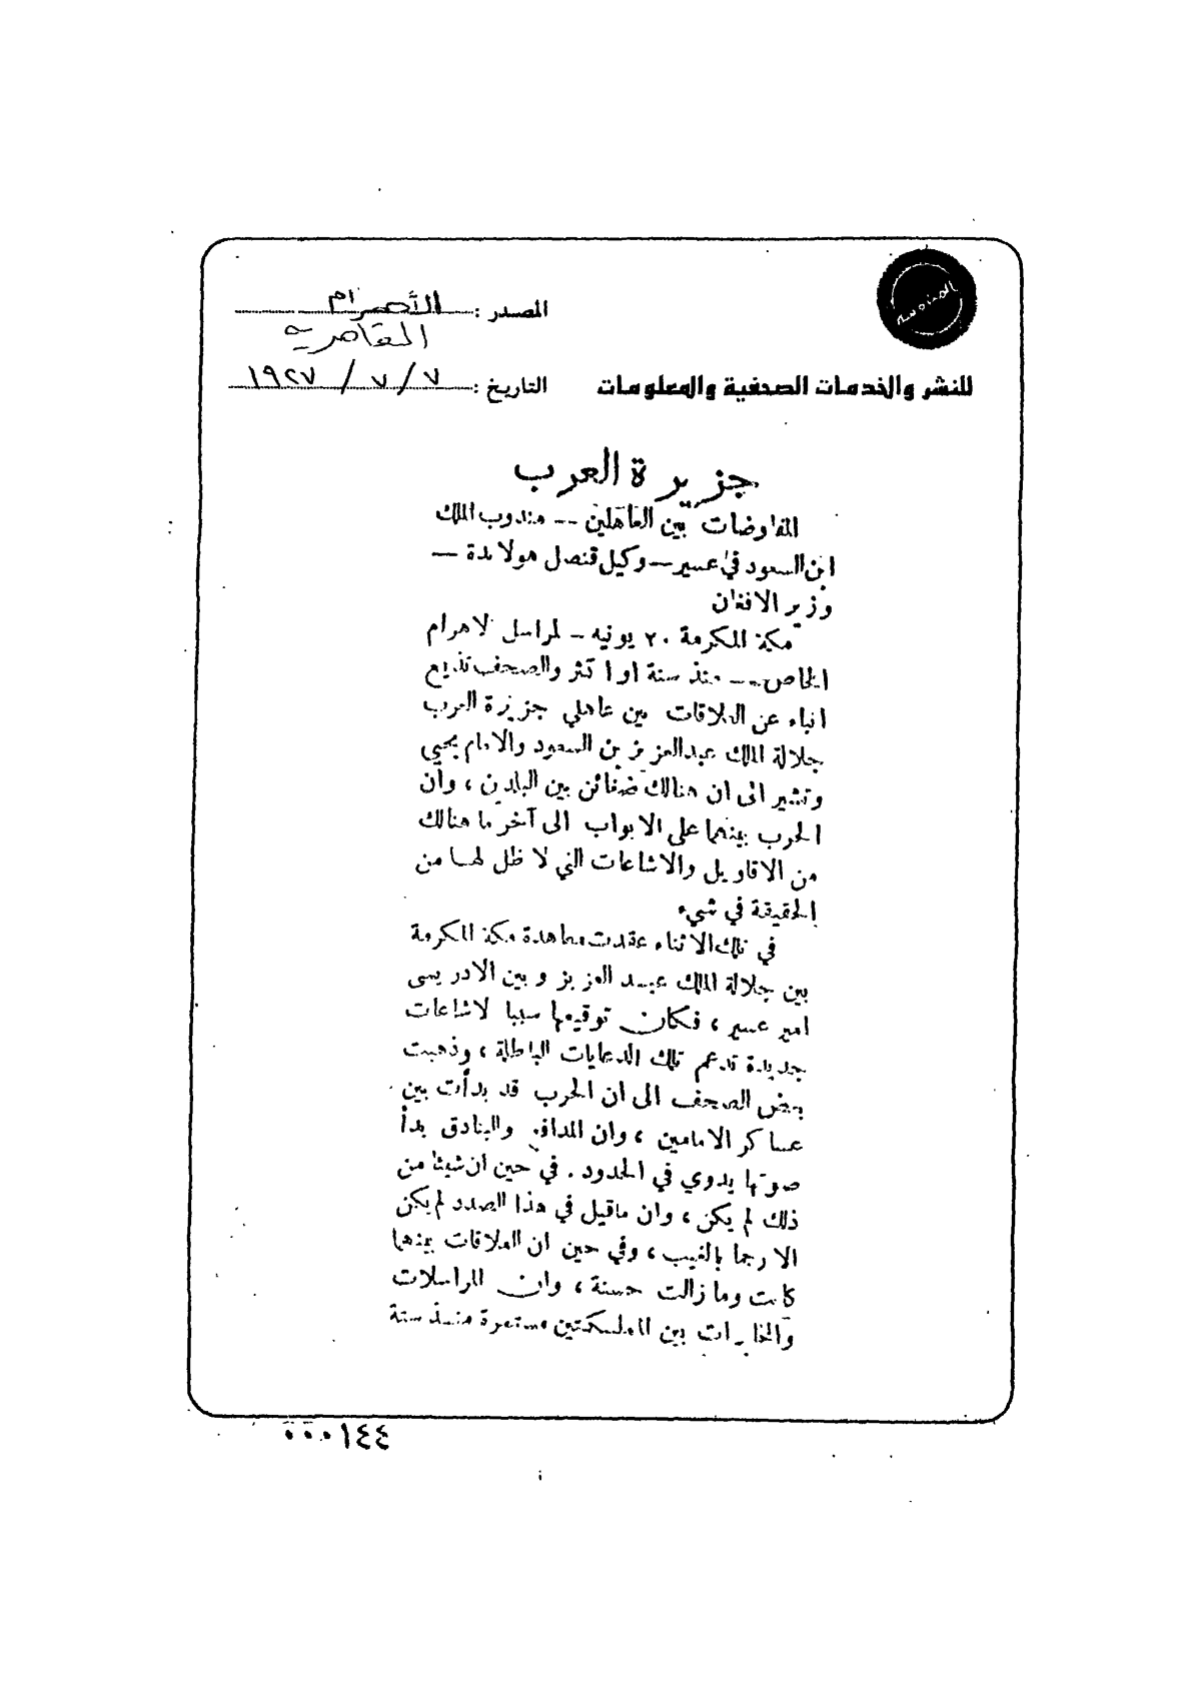 المصدر : الأهرام
القاهرية
للنشر والخدمات الصحفية والمعلومات
التاريخ : ٧ / ٧ / ١٩٢٧
جزيرة العرب
المفاوضات بين العاهلين -- مندوب الملك
ابن السعود في عسير -- وكيل قنصل هولاندة —
وزير الافغان
مكة المكرمة ٢٠ يونيه - لمراسل الاهرام
الخاص -- منذ سنة او اكثر والصحف تذيع
انباء عن العلاقات بين عاهلي جزيرة العرب
جلالة الملك عبدالعزيز بن السعود والامام يحيى
وتشير الى ان هنالك ضغائن بين البلدين ، وان
الحرب بينهما على الابواب الى آخر ما هنالك
من الاقاويل والاشاعات التي لا ظل لهـا من
الحقيقة في شيء
في تلك الاثناء عقدت معاهدة مكة المكرمة
بين جلالة الملك عبـد العزيز وبين الادريسى
امير عسير ، فكان توقيعها سببا لاشاعات
جديدة تدعم تلك الدعايات الباطلة ، وذهبت
بعض الصحف الى ان الحرب قد بدأت بين
عساكر الامامين ، وان المدافع والبنادق بدأ
صوتها يدوي في الحدود . في حين ان شيئا من
ذلك لم يكن ، وان ماقيل في هذا الصدد لم يكن
الا رجما بالغيب ، وفي حين ان العلاقات بينهما
كانت وما زالت حسنة ، وان المراسلات
والمخابرات بين المملكتين مستمرة منـذ سنة
٠٠٠١٤٤